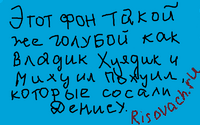 Этот фон такой
же голубой как
Владик Хуядик и
Михуил Похуил,
которые сосали
Денису.
Risovach.ru